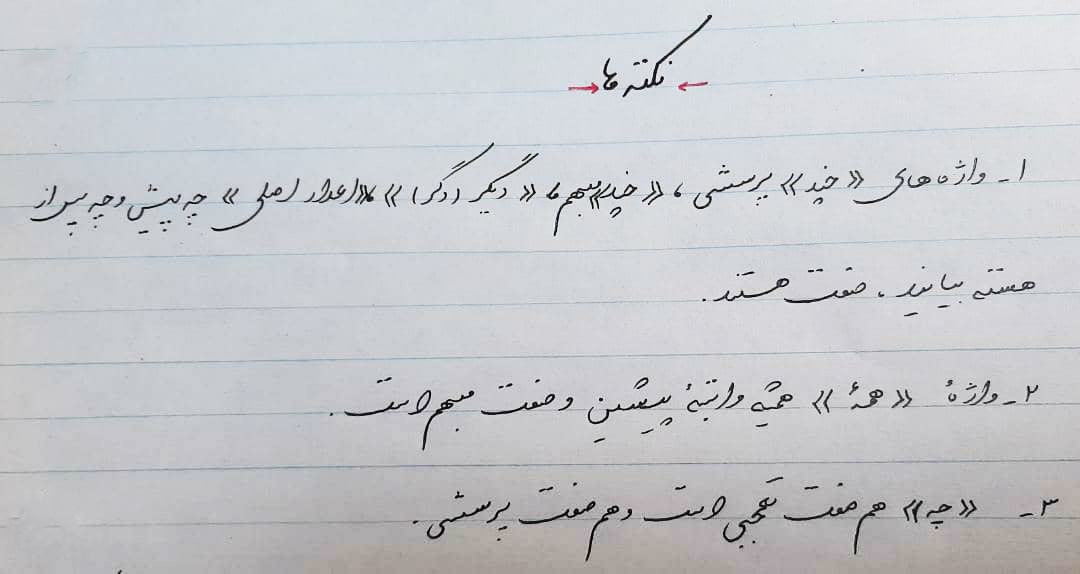 نکته ها
۱- واژه های «چند» پرسشی ، «چند» مبهم ، «دیگر (دگر)» ، «اعداد اصلی» چه پیش و چه پس از
هسته بیایند ، صفت هستند .
۲- واژهٔ «همهٔ» همیشه وابستهٔ پیشین و صفت مبهم است .
۳- «چه» هم صفت تعجبی است و هم صفت پرسشی .